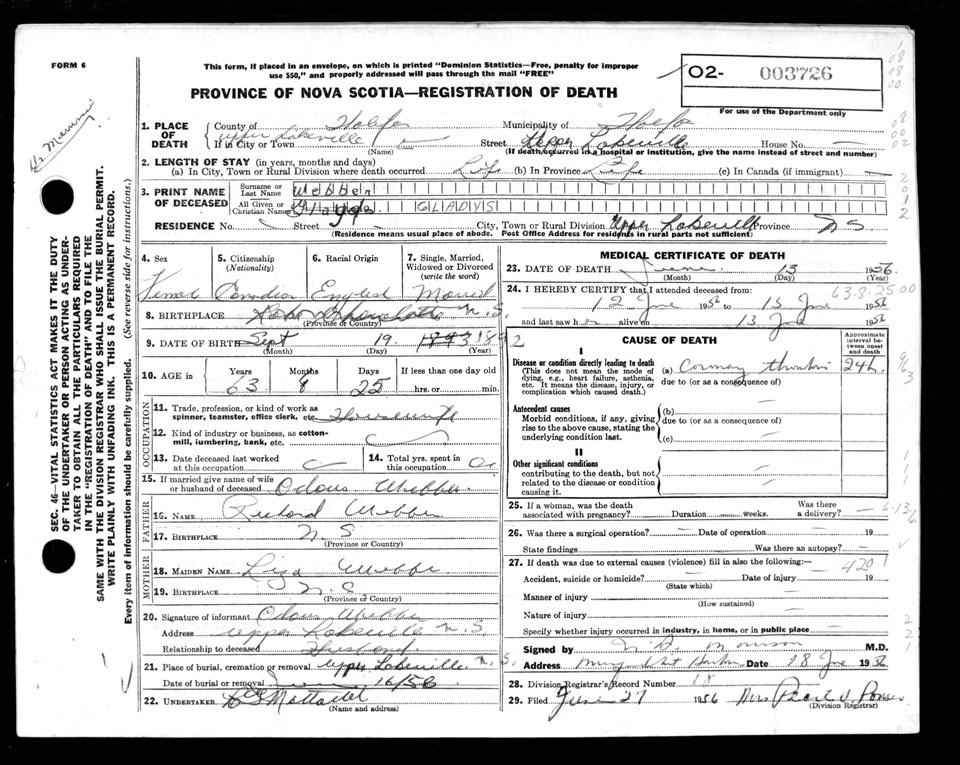 FORM 6
This form, if placed in an envelope, on which is printed "Dominion Statistics—Free, penalty for improper
use $50," and properly addressed will pass through the mail "FREE"
O2- 003726
PROVINCE OF NOVA SCOTIA—REGISTRATION OF DEATH
For use of the Department only
1. PLACE OF DEATH
County of Halifax Municipality of Halifax
If in City or Town Upper Lakeville Street Upper Lakeville House No.
(Name) (If death occurred in a hospital or institution, give the name instead of street and number)
2. LENGTH OF STAY (in years, months and days)
(a) In City, Town or Rural Division where death occurred Life (b) In Province Life (c) In Canada (if immigrant)
3. PRINT NAME OF DECEASED
Surname or Last Name Webber
All Given or Christian Names GLADYS
RESIDENCE No. Street City, Town or Rural Division Upper Lakeville Province N S
(Residence means usual place of abode. Post Office Address for residents in rural parts not sufficient)
4. Sex Female
5. Citizenship (Nationality) Canadian
6. Racial Origin English
7. Single, Married, Widowed or Divorced (write the word) Married
8. BIRTHPLACE N.S.
(Province or Country)
9. DATE OF BIRTH Sept 19 1893 1892
(Month) (Day) (Year)
10. AGE in Years 63 Months 8 Days 25 If less than one day old hrs. or min.
OCCUPATION
11. Trade, profession, or kind of work as spinner, teamster, office clerk, etc. Housewife
12. Kind of industry or business, as cotton-mill, lumbering, bank, etc.
13. Date deceased last worked at this occupation
14. Total yrs. spent in this occupation
15. If married give name of wife or husband of deceased Odous Webber
FATHER
16. NAME Richard Webber
17. BIRTHPLACE N. S.
(Province or Country)
MOTHER
18. MAIDEN NAME Liza Webber
19. BIRTHPLACE N. S.
(Province or Country)
20. Signature of informant Odous Webber
Address Upper Lakeville N.S.
Relationship to deceased Husband
21. Place of burial, cremation or removal Upper Lakeville N.S.
Date of burial or removal June 16/56
22. UNDERTAKER
(Name and address)
MEDICAL CERTIFICATE OF DEATH
23. DATE OF DEATH June 13 1956
(Month) (Day) (Year)
24. I HEREBY CERTIFY that I attended deceased from:
63-8-25-00
12 June 1956 to 13 June 1956
and last saw her alive on 13 June 1956
CAUSE OF DEATH
Approximate interval between onset and death
I
Disease or condition directly leading to death
(This does not mean the mode of dying, e.g., heart failure, asthenia, etc. It means the disease, injury, or complication which caused death.)
(a) Coronary Thrombosis 24h.
due to (or as a consequence of)
Antecedent causes
Morbid conditions, if any, giving rise to the above cause, stating the underlying condition last.
(b)
due to (or as a consequence of)
(c)
II
Other significant conditions
contributing to the death, but not related to the disease or condition causing it.
25. If a woman, was the death associated with pregnancy? Duration weeks. Was there a delivery?
6-13-6
26. Was there a surgical operation? Date of operation 19
State findings Was there an autopsy?
27. If death was due to external causes (violence) fill in also the following:—
420-1
Accident, suicide or homicide? Date of injury 19
(State which)
Manner of injury
(How sustained)
Nature of injury
Specify whether injury occurred in industry, in home, or in public place
Signed by M.D.
Address Date 18 June 1956
28. Division Registrar's Record Number 18
29. Filed June 27 1956 Mrs Pearl V. Power
(Division Registrar)
SEC. 46—VITAL STATISTICS ACT MAKES IT THE DUTY
OF THE UNDERTAKER OR PERSON ACTING AS UNDER-
TAKER TO OBTAIN ALL THE PARTICULARS REQUIRED
IN THE "REGISTRATION OF DEATH" AND TO FILE THE
SAME WITH THE DIVISION REGISTRAR WHO SHALL ISSUE THE BURIAL PERMIT.
WRITE PLAINLY WITH UNFADING INK. THIS IS A PERMANENT RECORD.
Every item of information should be carefully supplied. (See reverse side for instructions.)